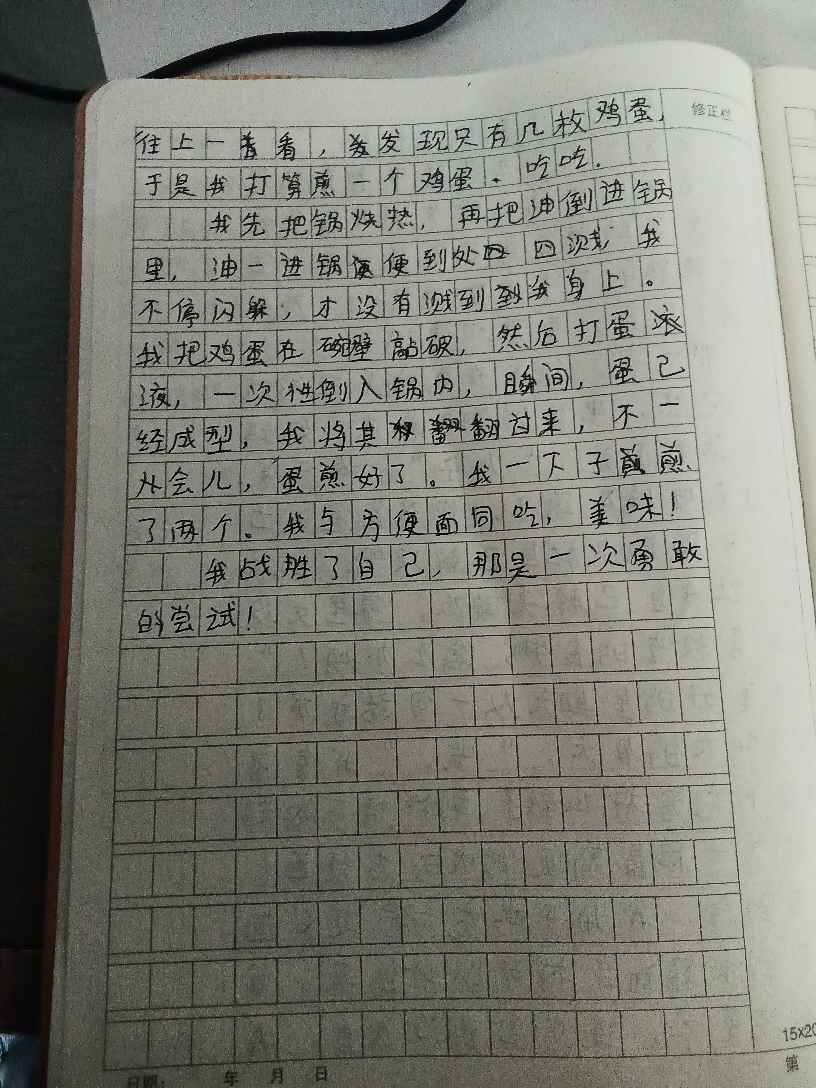 修正栏
往上一看,发现只有几枚鸡蛋,
于是我打算煎一个鸡蛋。吃吃.
我先把锅烧热,再把油倒进锅
里,油一进锅便到处四溅,我
不停闪躲,才没有溅到我身上。
我把鸡蛋在碗壁敲破,然后打蛋
液,一次性倒入锅内,瞬间,蛋己
经成型,我将其翻过来,不一
会儿,蛋煎好了。我一下子煎
了两个。我与方便面同吃,美味!
我战胜了自己,那是一次勇敢
的尝试!
15×20
第
日期: 年 月 日